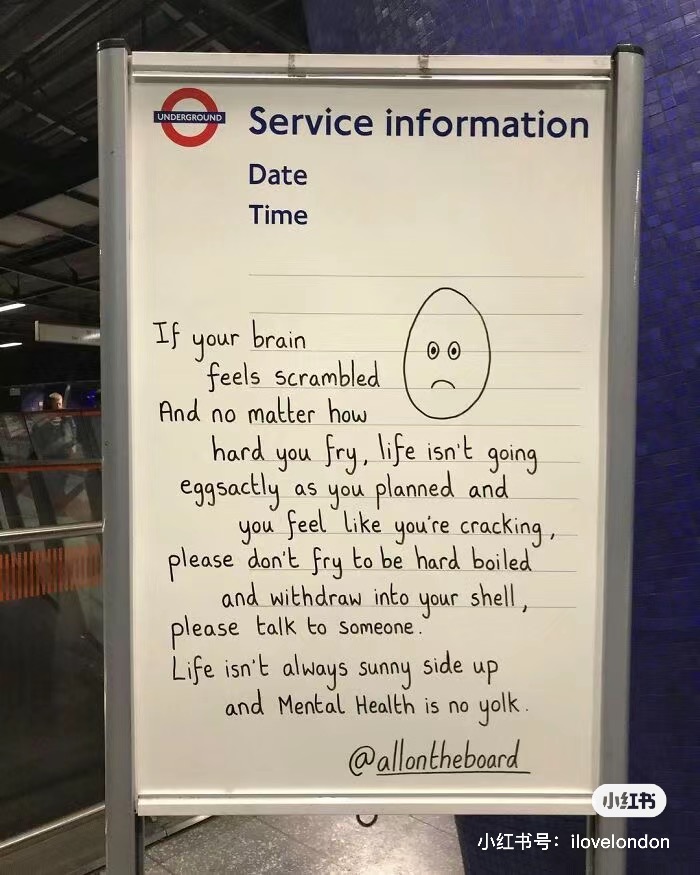 UNDERGROUND
Service information
Date
Time
If your brain
feels scrambled
And no matter how
hard you fry, life isn't going
eggsactly as you planned and
you feel like you're cracking,
please don't fry to be hard boiled
and withdraw into your shell,
please talk to someone.
Life isn't always sunny side up
and Mental Health is no yolk.
@allontheboard
小红书
小红书号：ilovelondon